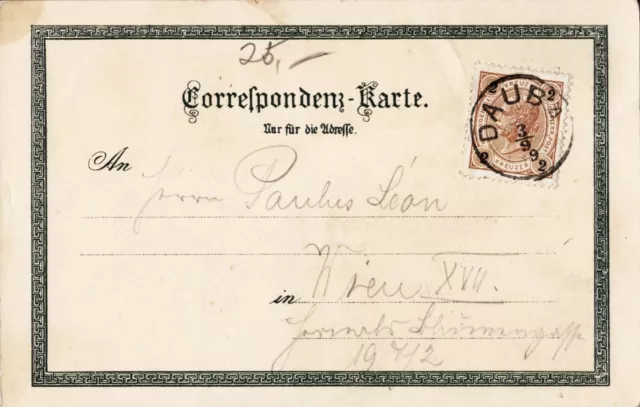 25,—
Correspondenz-Karte.
Nur für die Adresse.
DAUBA
3/9 99
2 KREUZER 2
An Herrn Paulus Léon
in Wien XVII.
Hernals Blumengasse
19